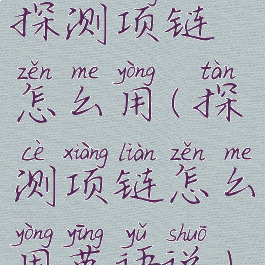 探测项链
zěn me yòng tàn
怎么用(探
cè xiàng liàn zěn me
测项链怎么
yòng yīng yǔ shuō
用英语说)